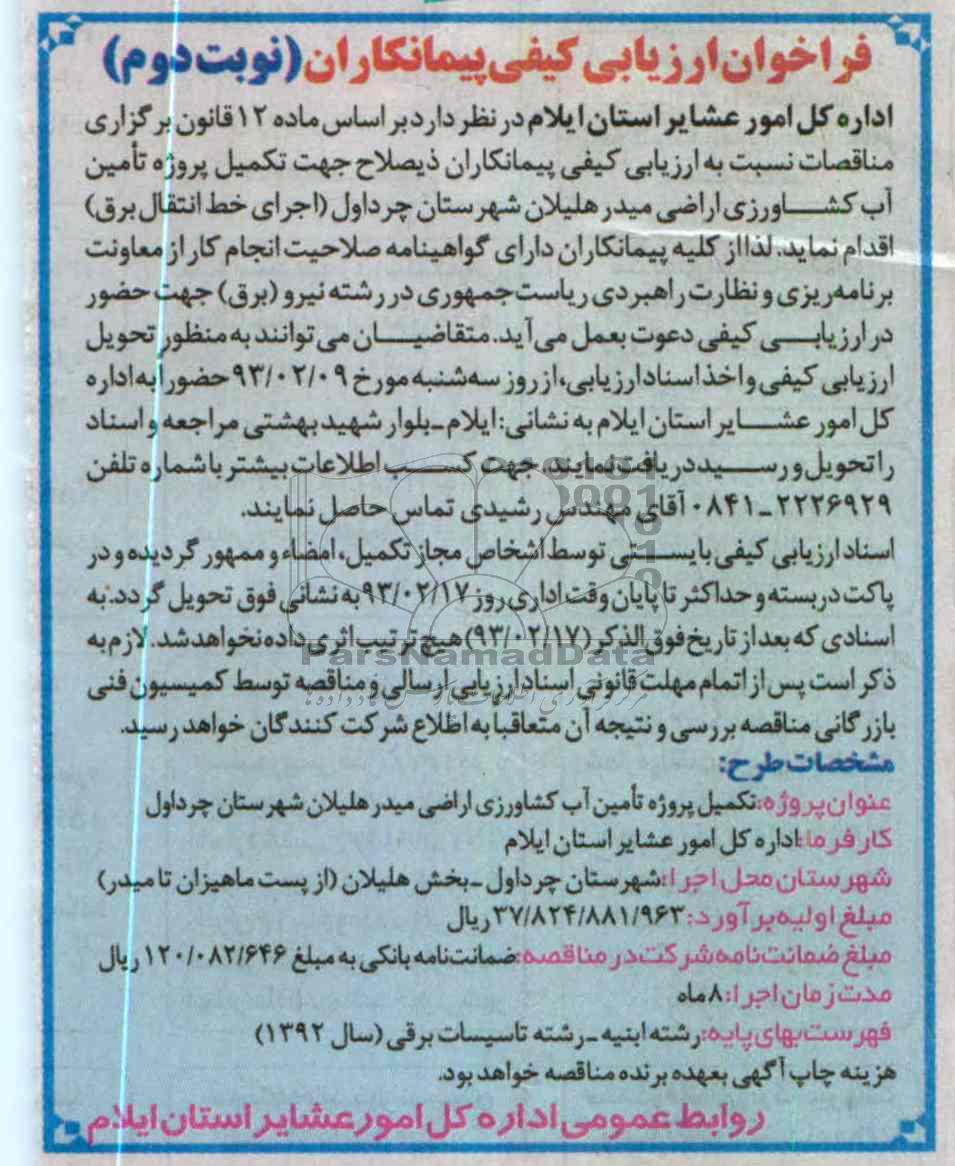 فراخوان ارزیابی کیفی پیمانکاران (نوبت دوم)
اداره کل امور عشایر استان ایلام در نظر دارد بر اساس ماده ۱۲ قانون برگزاری
مناقصات نسبت به ارزیابی کیفی پیمانکاران ذیصلاح جهت تکمیل پروژه تأمین
آب کشاورزی اراضی میدر هلیلان شهرستان چرداول (اجرای خط انتقال برق)
اقدام نماید. لذا از کلیه پیمانکاران دارای گواهینامه صلاحیت انجام کار از معاونت
برنامه‌ریزی و نظارت راهبردی ریاست جمهوری در رشته نیرو (برق) جهت حضور
در ارزیابی کیفی دعوت بعمل می‌آید. متقاضیان می‌توانند به منظور تحویل
ارزیابی کیفی و اخذ اسناد ارزیابی، از روز سه‌شنبه مورخ ۹۳/۰۲/۰۹ حضوراً به اداره
کل امور عشایر استان ایلام به نشانی: ایلام ـ بلوار شهید بهشتی مراجعه و اسناد
را تحویل و رسید دریافت نمایند. جهت کسب اطلاعات بیشتر با شماره تلفن
۲۲۲۶۹۲۹ـ۰۸۴۱ آقای مهندس رشیدی تماس حاصل نمایند.
اسناد ارزیابی کیفی بایستی توسط اشخاص مجاز تکمیل، امضاء و ممهور گردیده و در
پاکت دربسته و حداکثر تا پایان وقت اداری روز ۹۳/۰۲/۱۷ به نشانی فوق تحویل گردد. به
اسنادی که بعد از تاریخ فوق الذکر (۹۳/۰۲/۱۷) هیچ ترتیب اثری داده نخواهد شد. لازم به
ParsNamadData
ذکر است پس از اتمام مهلت قانونی اسناد ارزیابی ارسالی و مناقصه توسط کمیسیون فنی
بازرگانی مناقصه بررسی و نتیجه آن متعاقباً به اطلاع شرکت کنندگان خواهد رسید.
مشخصات طرح:
عنوان پروژه: تکمیل پروژه تأمین آب کشاورزی اراضی میدر هلیلان شهرستان چرداول
کارفرما: اداره کل امور عشایر استان ایلام
شهرستان محل اجرا: شهرستان چرداول ـ بخش هلیلان (از پست ماهیزان تا میدر)
مبلغ اولیه برآورد: ۳۷/۸۲۴/۸۸۱/۹۶۳ ریال
مبلغ ضمانت‌نامه شرکت در مناقصه: ضمانت‌نامه بانکی به مبلغ ۱۲۰/۰۸۲/۶۴۶ ریال
مدت زمان اجرا: ۸ ماه
فهرست بهای پایه: رشته ابنیه ـ رشته تاسیسات برقی (سال ۱۳۹۲)
هزینه چاپ آگهی بعهده برنده مناقصه خواهد بود.
روابط عمومی اداره کل امور عشایر استان ایلام